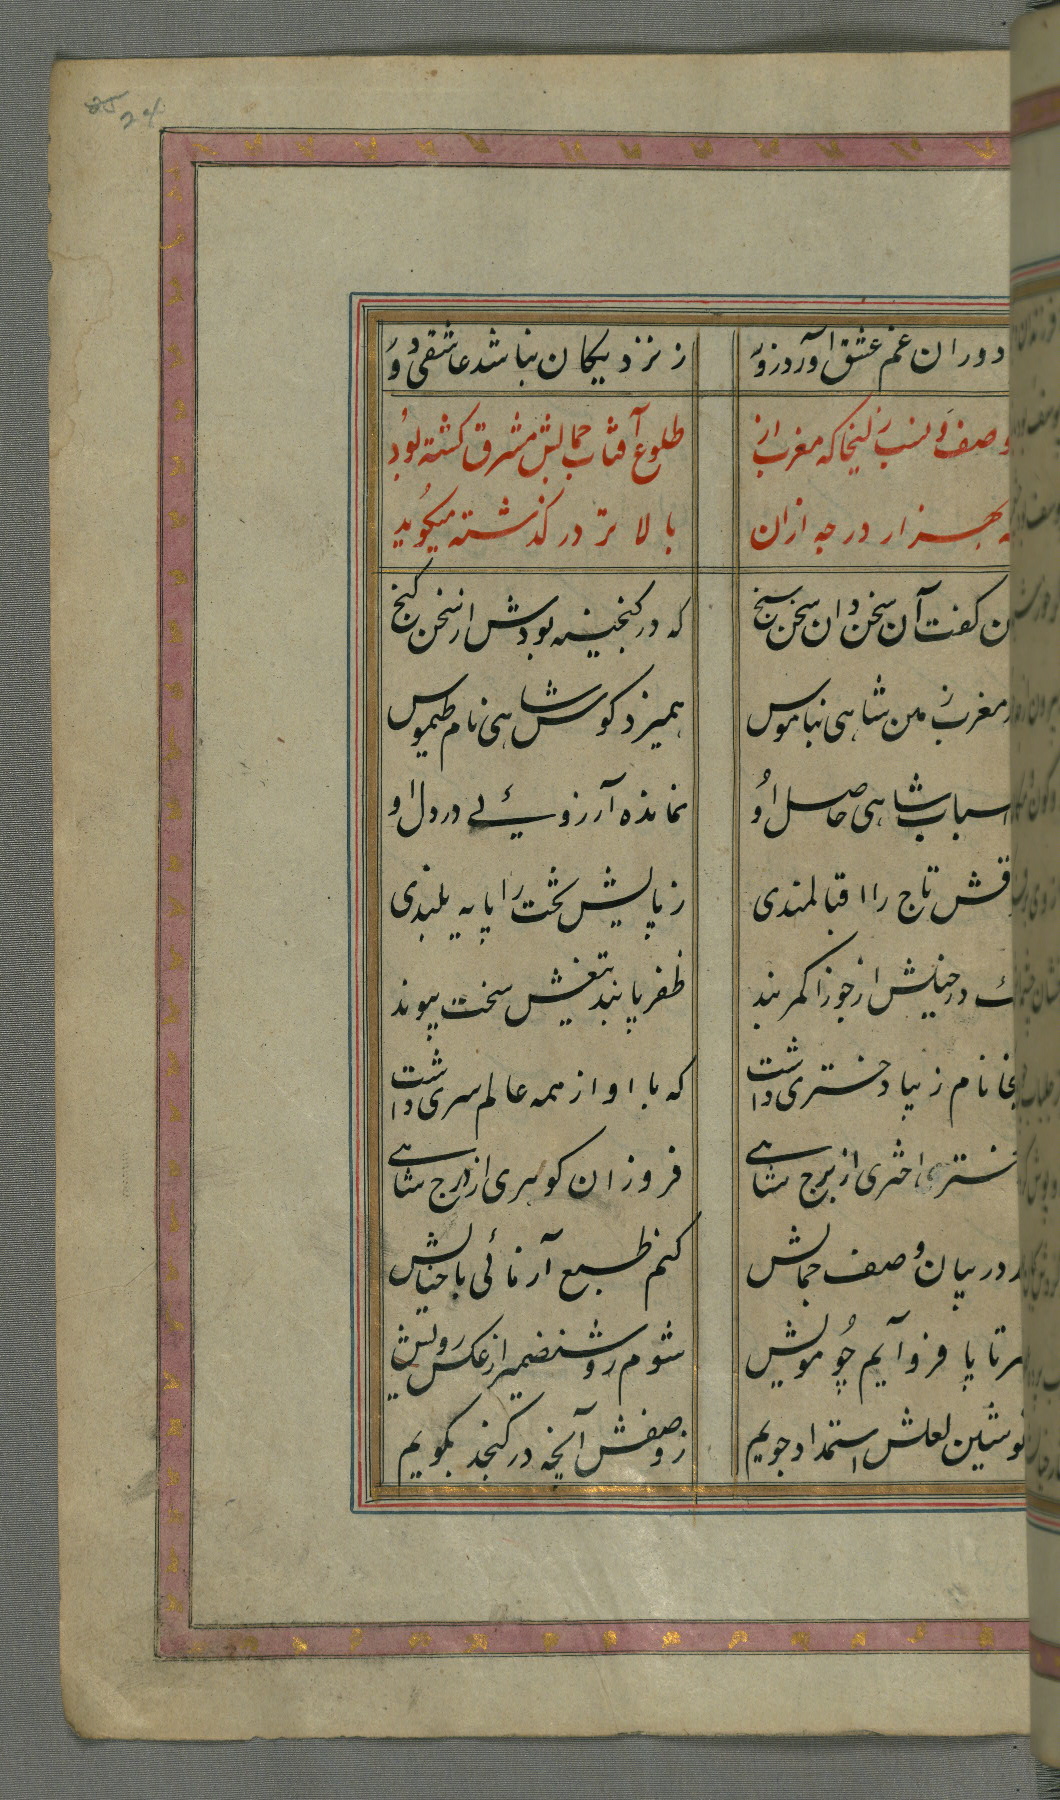 25 24
دوران غم عشق آورد زور
ز نزدیکان نباشد عاشقی دور
وصف و نسب زلیخا که مغرب از
طلوع آفتاب جمالش مشرق کشته بود
بهزار درجه ازان
بالاتر در کذشته میکوید
کفت آن سخن دان سخن سنج
که در کنجینه بودش از سخن کنج
مغرب زمین شاهی بناموس
همیزد کوس شاهی نام طیموس
اسباب شاهی حاصل او
نمانده آرزوئی در دل او
تاج را اقبالمندی
ز پایش تخت را پایه بلندی
در خیلش از جوزا کمر بند
ظفر پا بند تیغش سخت پیوند
نام زیبا دختری داشت
که با او از همه عالم سری داشت
اختری از برج شاهی
فروزان کوهری از درج شاهی
در بیان وصف جمالش
کنم طبع آزمائی با خیالش
سر تا پا فرو آیم چو مویش
شوم روشنضمیر از عکس رویش
نوشین لعلش استمداد جویم
ز وصفش آنچه در کنجد بکویم